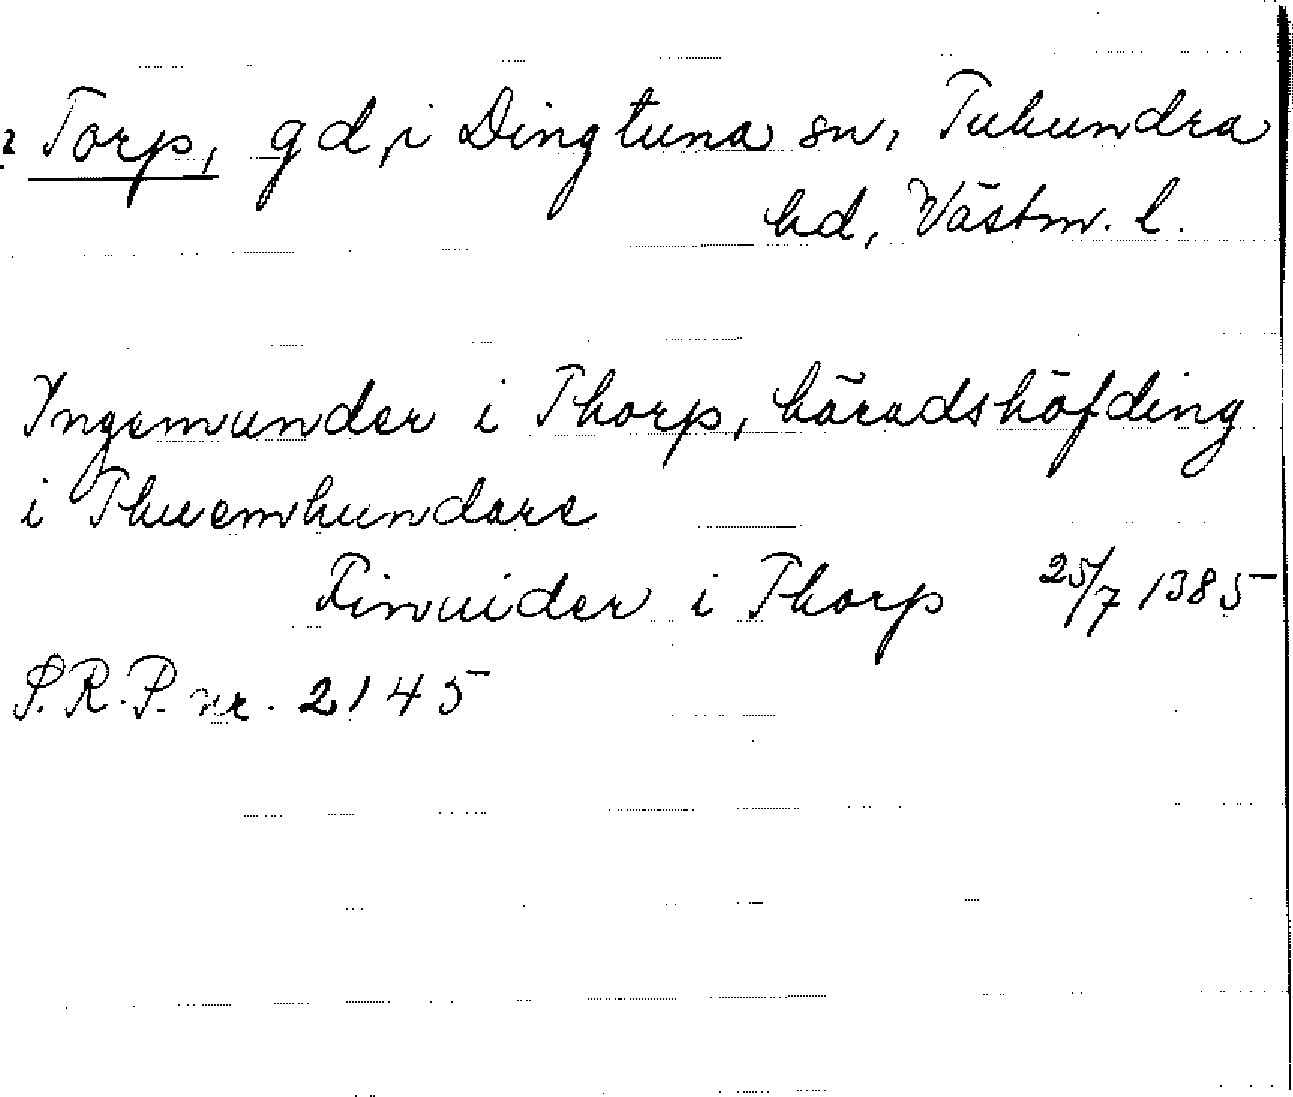 Torp, gd, i Dingtuna sn, Tuhundra
hd, Västm. l.
Yngemunder i Thorp, häradshöfding
i Thuemhundare
Finuider i Thorp 25/7 1385
S.R.P. nr. 2145